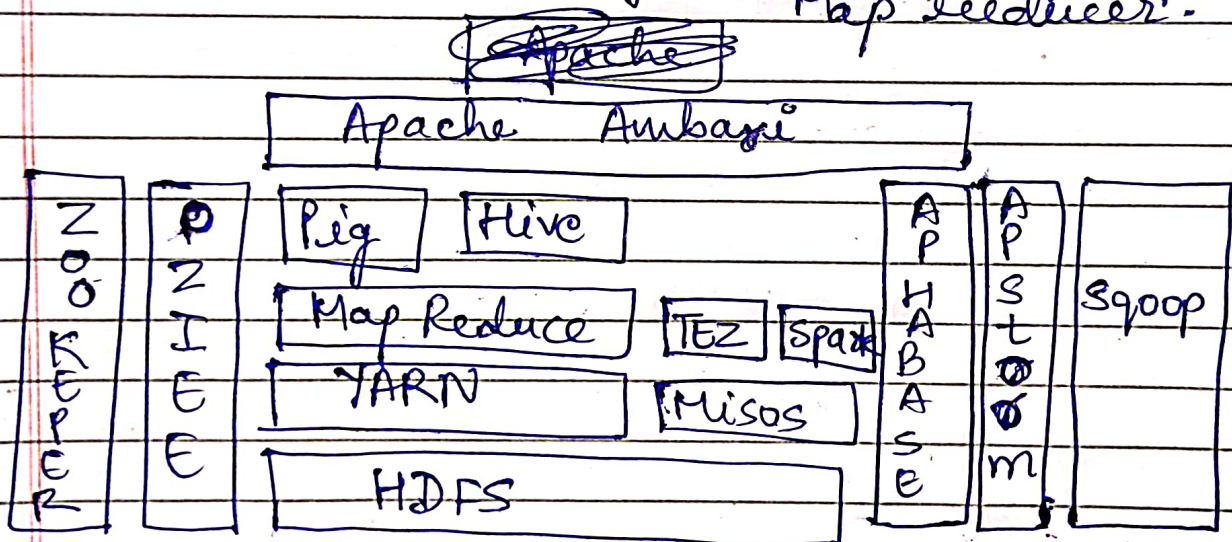 Map reeducer.
Apache
Apache Ambari
ZOOKEPER
OZIEE
Pig
Hive
Map Reduce
TEZ
Spark
YARN
Misos
HDFS
AP HABASE
AP Stoom
Sqoop